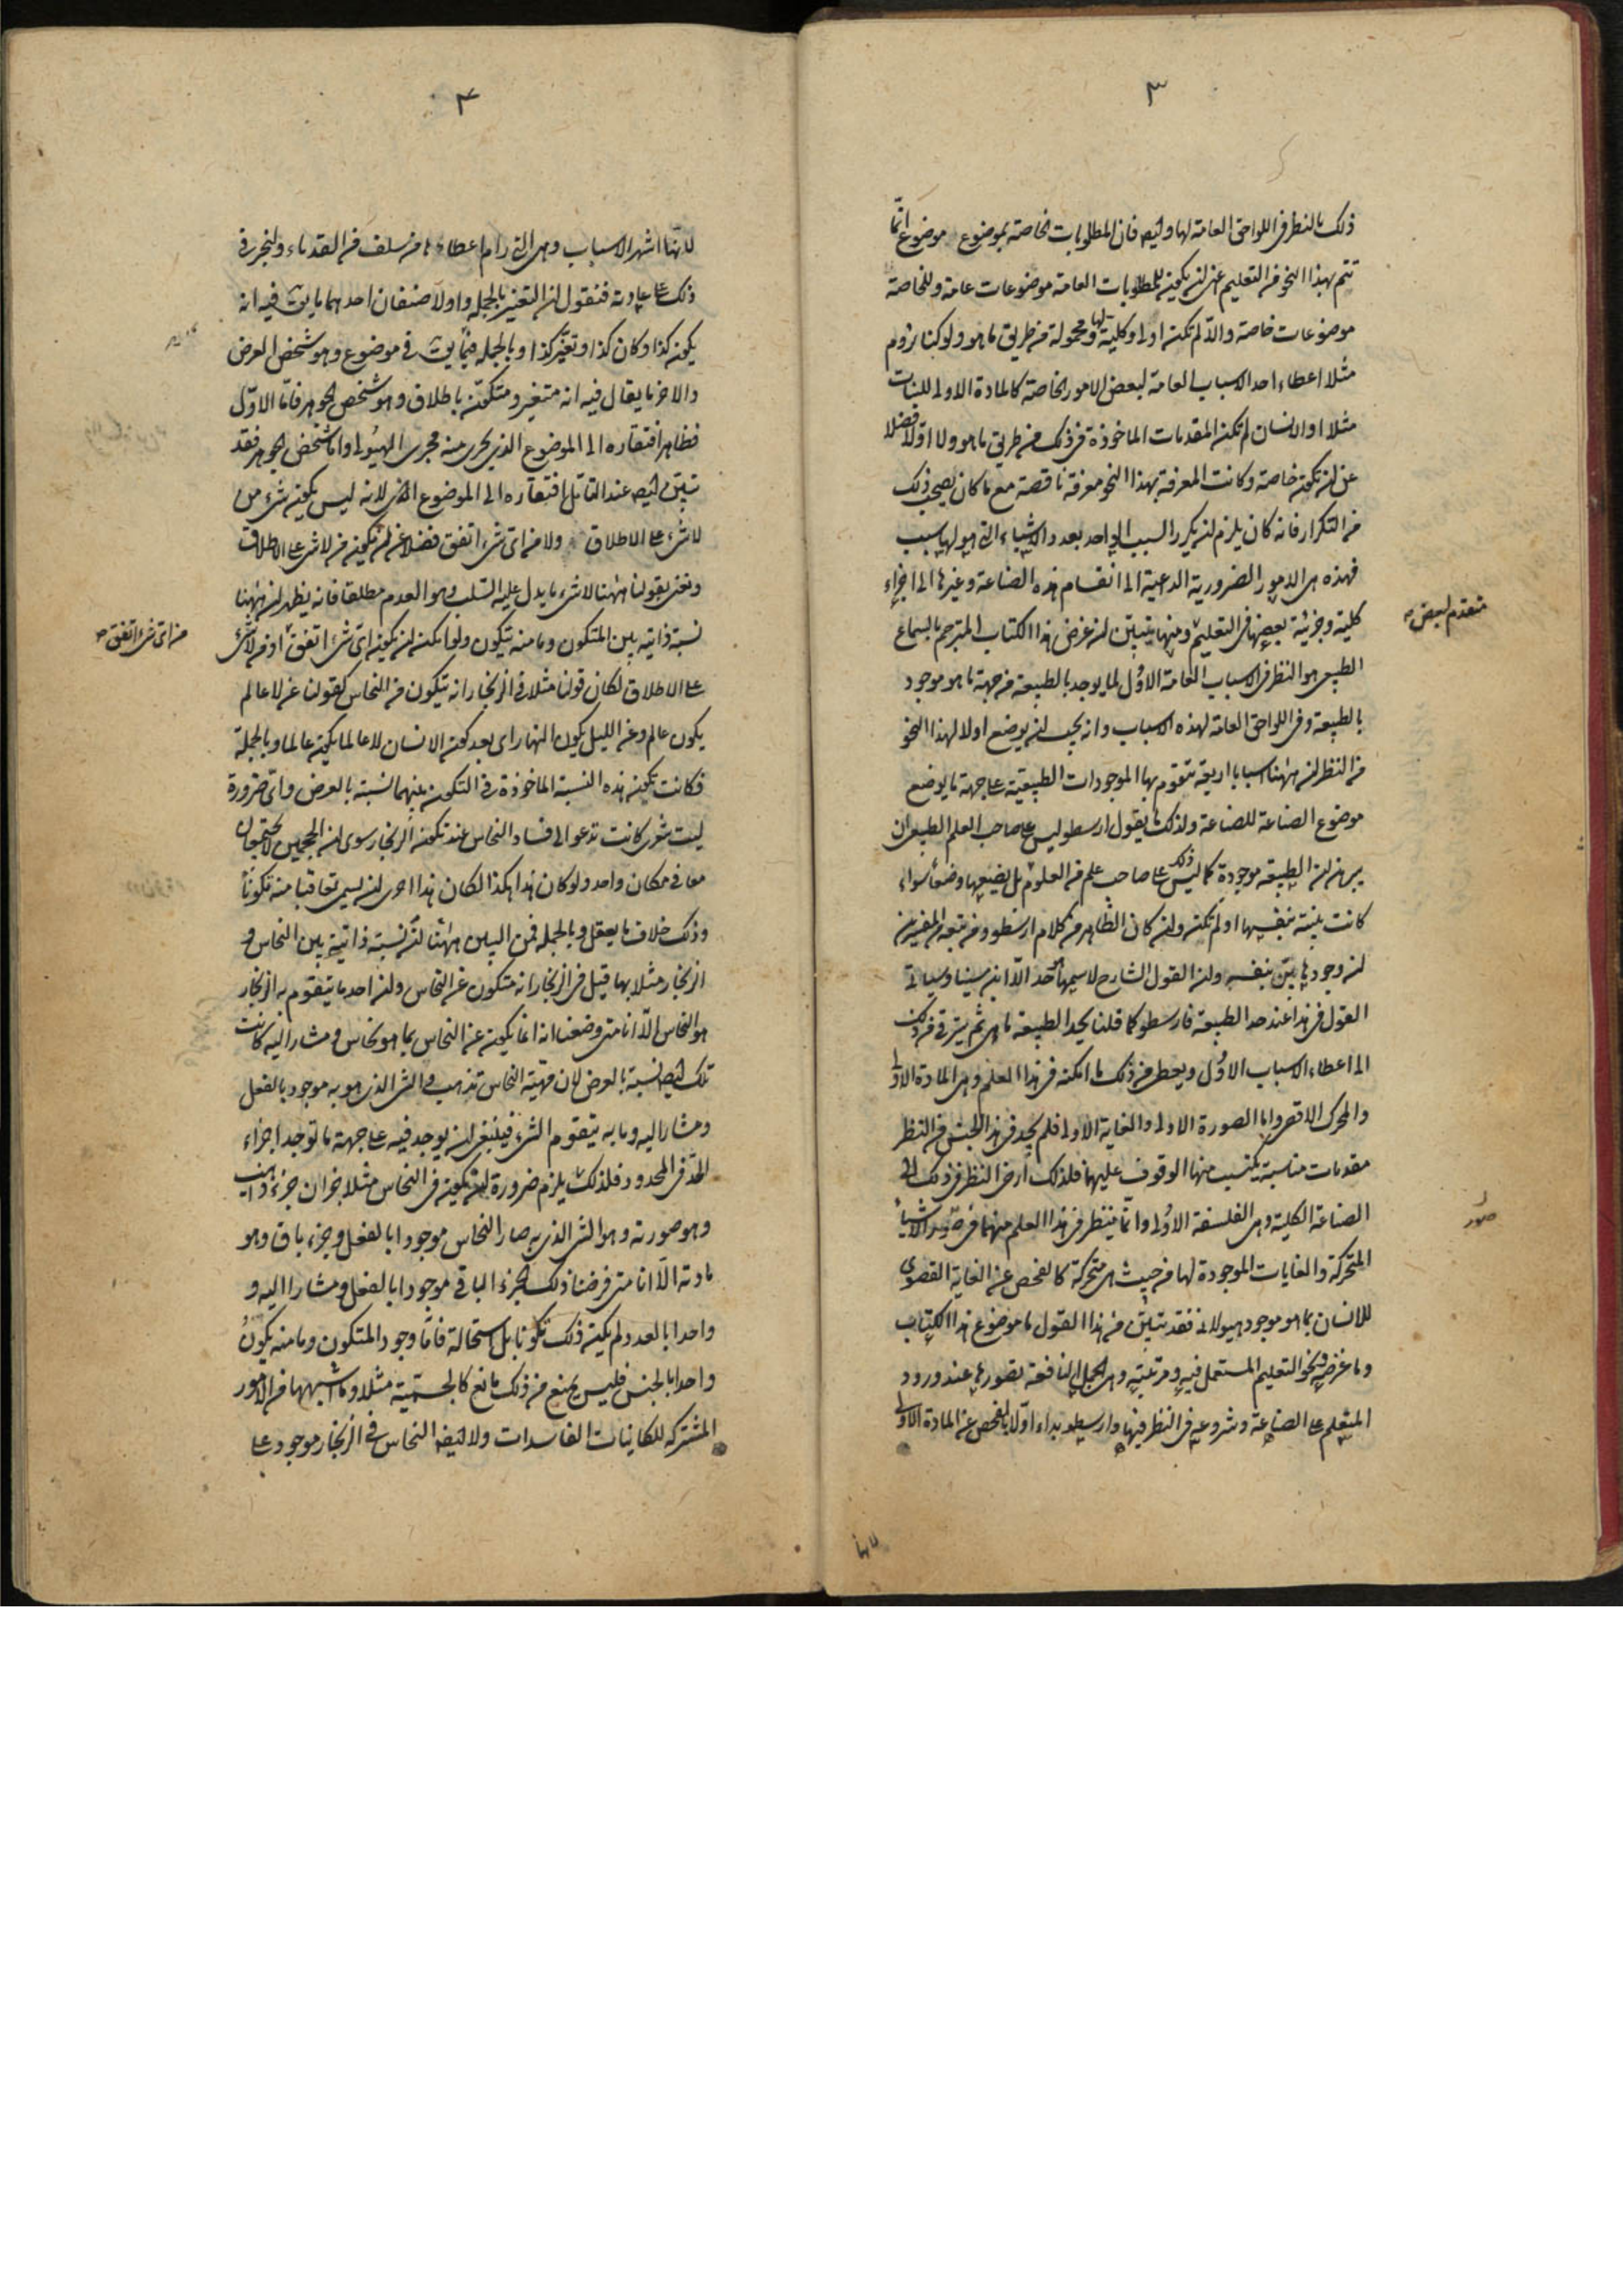 ٣
ذلك بالنظر فى اللواحق العامة لها وايضا فان المطلوبات الخاصة بموضوع موضوع انما
تتم بهذا النحو من التعليم اعنى ان يكون للمطلوبات العامة موضوعات عامة وللخاصة
موضوعات خاصة والا لم تكن اولا وكلية لها ومحمولة من طريق ما هو ولو كنا نروم
مثلا اعطاء احد الاسباب العامة لبعض الامور الخاصة كالمادة الاولى للنبات
مثلا او الانسان لم تكن المقدمات الماخوذة فى ذلك من طريق ما هو ولا اولا فضلا
عن ان تكون خاصة وكانت المعرفة بهذا النحو معرفة ناقصة مع ما كان يصحب ذلك
من التكرار فانه كان يلزم ان يكرر السبب الواحد بعدد الاشياء التى هو لها سبب
فهذه هى الامور الضرورية الداعية الى انقسام هذه الصناعة وغيرها الى اجزاء
كلية وجزئية بعضها فى التعليم ومنها يتبين ان غرض هذا الكتاب المترجم بالسماع
متقدم لبعض صح
الطبيعى هو النظر فى الاسباب العامة الاول لما يوجد بالطبيعة من جهة ما هو موجود
بالطبيعة وفى اللواحق العامة لهذه الاسباب وانه يجب ان يوضع اولا لهذا النحو
من النظر ان ههنا اسبابا اربعة تتقوم بها الموجودات الطبيعية على جهة ما يوضع
موضوع الصناعة للصناعة ولذلك ما يقول ارسطو ليس على صاحب العلم الطبيعى ان
يبرهن ان الطبيعة موجودة كما ليس ذلك على صاحب علم من العلوم بل يضعها وضعا سواء
كانت بينة بنفسها او لم تكن وان كان الظاهر من كلام ارسطو ومن تبعه من المفسرين
ان وجودها بين بنفسه وان القول الشارح لاسمها حد الا ابن سينا وسياتى
القول فى هذا عند حد الطبيعة فارسطو كما قلنا يحد الطبيعة ما هى ثم يترقى من ذلك
الى اعطاء الاسباب الاول ويعطى من ذلك ما امكنه فى هذا العلم وهى المادة الاولى
والمحرك الاقصى واما الصورة الاولى والغاية الاولى فلم يجد فى هذا الجنس من النظر
مقدمات مناسبة يكتسب منها الوقوف عليهما فلذلك ارجى النظر فى ذلك الى
الصناعة الكلية وهى الفلسفة الاولى وانما ينظر فى هذا العلم منهما فى صور الاشياء
صور
المتحركة والغايات الموجودة لها من حيث هى متحركة كالفحص عن الغاية القصوى
للانسان بما هو موجود هيولانى فقد تبين من هذا القول ما موضوع هذا الكتاب
وما غرضه ونحو التعليم المستعمل فيه ومرتبته وهى الجمل النافعة تصورها عند ورود
المتعلم على الصناعة وشروعه فى النظر فيها وارسطو بداء اولا بالفحص عن المادة الاولى
لانها
٤
لانها اشهر الاسباب وهى التى رام اعطاءها من سلف من القدماء ولنجر فى
ذلك على عادته فنقول ان التغير بالجملة واولا صنفان احدهما ما يق فيه انه
يكون كذا وكان كذا وتغير كذا وبالجملة فيما يق فى موضوع وهو شخص العرض
والاخر ما يقال فيه انه متغير ومتكون باطلاق وهو شخص الجوهر فاما الاول
فظاهر افتقاره الى الموضوع الذى يجرى منه مجرى الهيولى واما شخص الجوهر فقد
تبين ايضا عند التامل افتقاره الى الموضوع اذ لانه ليس يكون شىء من
لا شىء على الاطلاق ولا من اى شىء اتفق فضلا عن ان يكون من لا شىء على الاطلاق
ونعنى بقولنا ههنا لا شىء ما يدل عليه السلب وهو العدم مطلقا فانه يظهر ان ههنا
نسبة ذاتية بين المتكون وما منه يتكون ولو امكن ان يكون اى شىء اتفق او من لا شىء
من اى شىء اتفق صح
على الاطلاق لكان قولنا مثلا فى الزنجار انه يتكون من النحاس كقولنا عن لا عالم
يكون عالم وعن الليل يكون النهار اى بعد كون الانسان لا عالما يكون عالما وبالجملة
فكانت تكون هذه النسبة الماخوذة فى التكون بينهما نسبة بالعرض واى ضرورة
ليت شعرى كانت تدعو الى فساد النحاس عند تكون الزنجار سوى ان الجسمين لا يجتمعان
معا فى مكان واحد ولو كان هذا هكذا لكان هذا احرى ان يسمى تعاقبا منه تكونا
وذلك خلاف ما يعقل وبالجملة فمن البين ههنا ان نسبة ذاتية بين النحاس و
الزنجار مثلا بها قيل فى الزنجار انه متكون عن النحاس وان احد ما يتقوم به الزنجار
هو النحاس الا انا متى وضعنا انه انما يكون عن النحاس بما هو نحاس ومشار اليه كانت
تلك ايضا نسبة بالعرض لان مهية النحاس تذهب والشى الذى هو به موجود بالفعل
ومشار اليه وما به يتقوم الشىء فينبغى ان يوجد فيه على جهة ما توجد اجزاء
الحد فى المحدود فلذلك ما يلزم ضرورة ان يكون فى النحاس مثلا جزان جزء ذاهب
وهو صورته وهو الشى الذى به صار النحاس موجودا بالفعل وجزء باق وهو
مادته الا انا متى فرضنا ذلك الجزء الباقى موجودا بالفعل ومشارا اليه و
واحدا بالعدد لم يكن ذلك تكونا بل استحالة فاما وجود المتكون وما منه يكون
واحدا بالجنس فليس يمنع من ذلك مانع كالجسمية مثلا وما اشبهها من الامور
المشتركة للكاينات الفاسدات ولا ايضا النحاس فى الزنجار موجود على